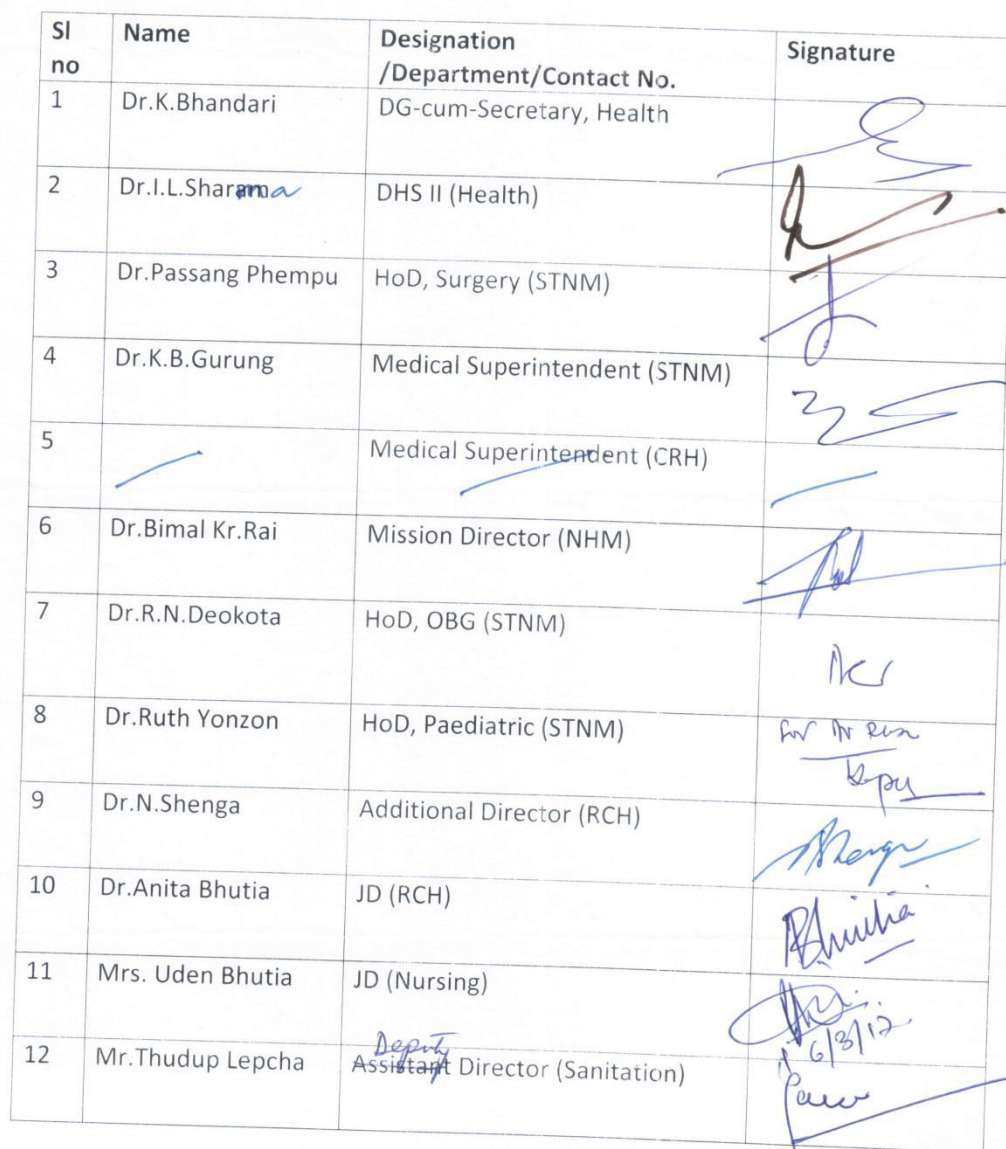 Sl no Name Designation /Department/Contact No. Signature
1 Dr.K.Bhandari DG-cum-Secretary, Health
2 Dr.I.L.Sharama DHS II (Health)
3 Dr.Passang Phempu HoD, Surgery (STNM)
4 Dr.K.B.Gurung Medical Superintendent (STNM)
5 Medical Superintendent (CRH)
6 Dr.Bimal Kr.Rai Mission Director (NHM)
7 Dr.R.N.Deokota HoD, OBG (STNM)
8 Dr.Ruth Yonzon HoD, Paediatric (STNM) for Dr
9 Dr.N.Shenga Additional Director (RCH)
10 Dr.Anita Bhutia JD (RCH) Bhutia
11 Mrs. Uden Bhutia JD (Nursing)
Deputy
12 Mr.Thudup Lepcha Assistant Director (Sanitation)